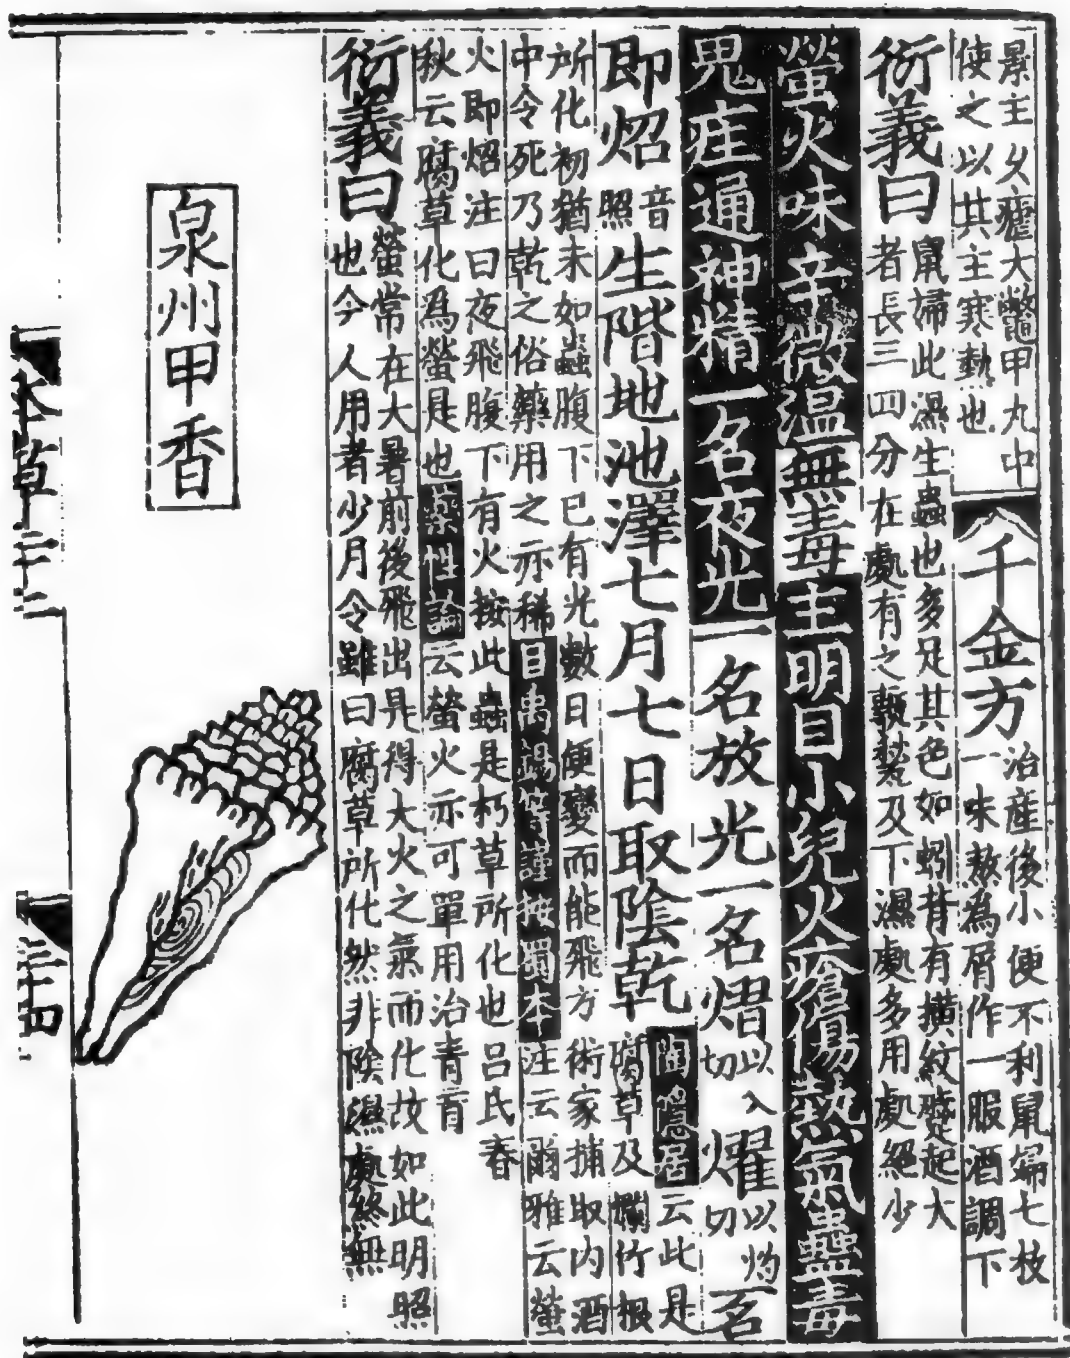 景主久瘧大鱉甲丸中
使之以其主寒熱也
千金方
治産後小便不利鼠婦七枚
一味熬為屑作一服酒調下
衍義曰
鼠婦此濕生蟲也多足其色如蚓背有橫紋蹙起大
者長三四分在處有之甎甃及下濕處多用處絕少
螢火味辛微温無毒主明目小兒火瘡傷熱氣蠱毒
鬼疰通神精一名夜光一名放光一名熠以入切燿以灼切一名
即炤音照生階地池澤七月七日取陰乾
陶隱居云此是
腐草及爛竹根
所化初猶未如蟲腹下已有光數日便變而能飛方術家捕取内酒
中令死乃乾之俗藥用之亦稀臣禹錫等謹按蜀本注云爾雅云螢
火即炤注曰夜飛腹下有火按此蟲是朽草所化也吕氏春
秋云腐草化為螢是也藥性論云螢火亦可單用治青盲
衍義曰
螢常在大暑前後飛出是得大火之氣而化故如此明照
也今人用者少月令雖曰腐草所化然非陰濕處終無
泉州甲香
本草二十二
三十四